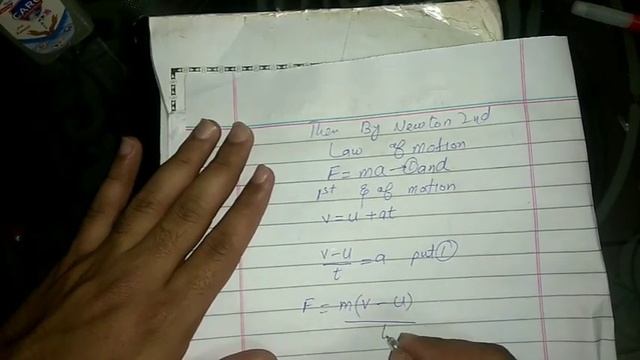 Then By Newton 2nd
Law of motion
F = ma → ① and
1st eq of motion
v = u + at
v - u / t = a put ①
F = m(v - u)